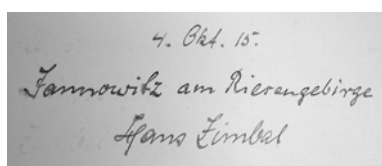 4. Okt. 15.
Jannowitz am Riesengebirge
Hans Zimbal